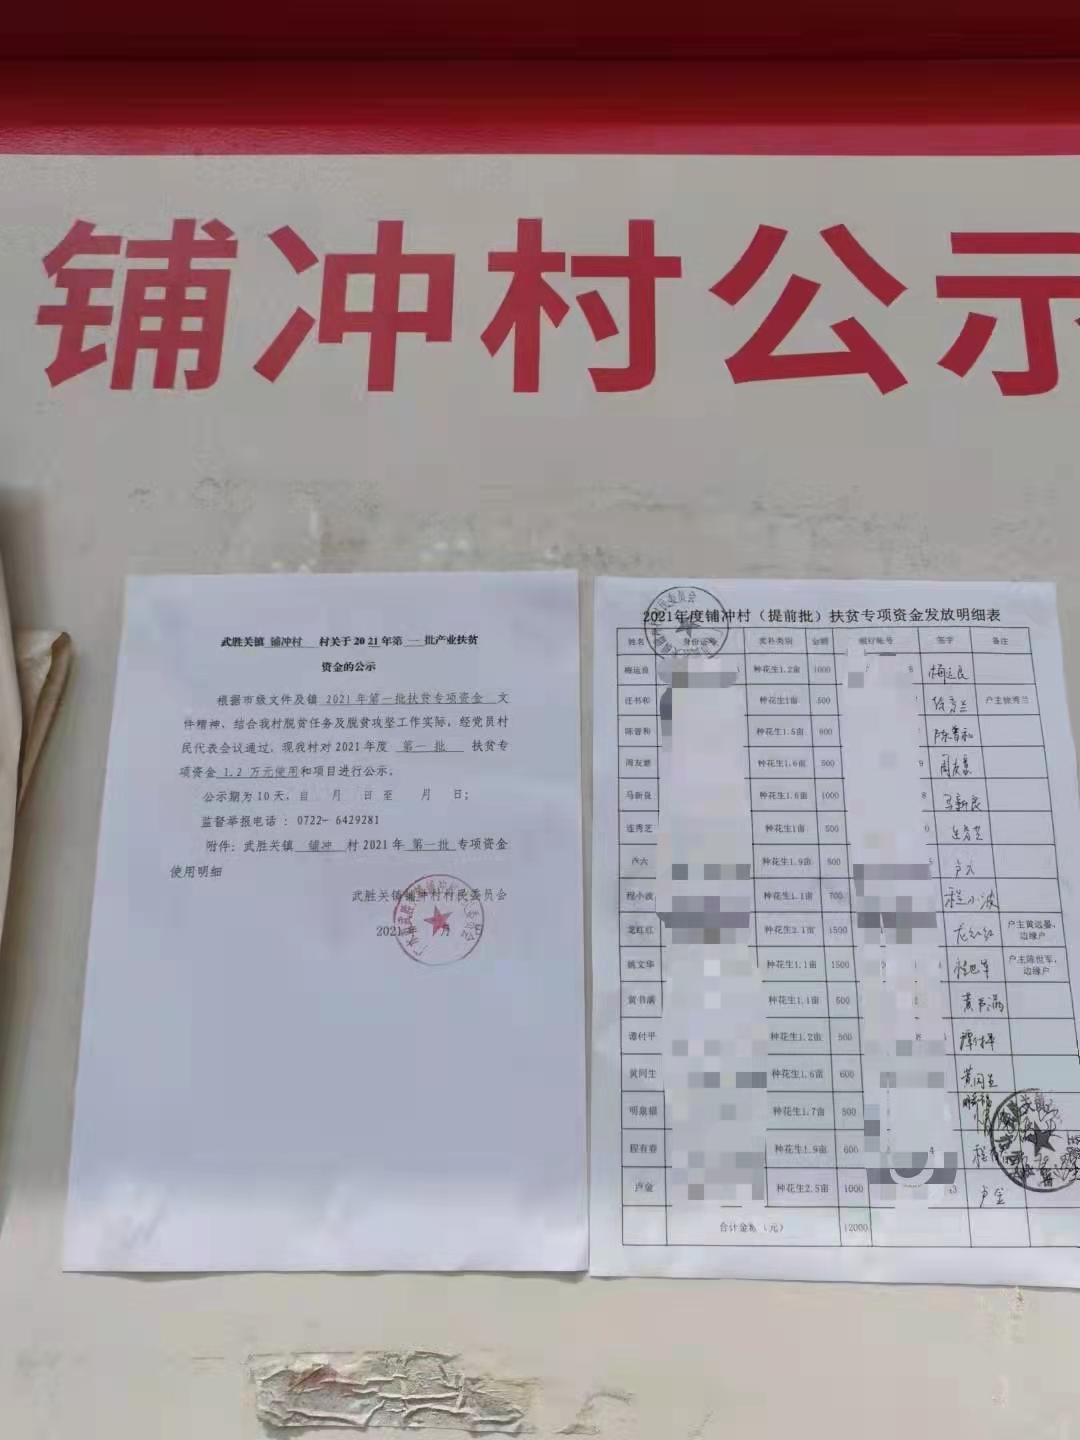 铺冲村公示
武胜关镇 铺冲村 村关于2021年第 一 批产业扶贫
资金的公示
根据市级文件及镇 2021年第一批扶贫专项资金 文
件精神、结合我村脱贫任务及脱贫攻坚工作实际，经党员村
民代表会议通过，现我村对2021年度 第一批 扶贫专
项资金 1.2 万元使用和项目进行公示。
公示期为10天，自 月 日至 月 日；
监督举报电话：0722-6429281
附件：武胜关镇 铺冲 村2021年 第一批 专项资金
使用明细
武胜关镇铺冲村村民委员会
2021年 月
2021年度铺冲村（提前批）扶贫专项资金发放明细表
姓名 身份证号 奖补类别 金额 银行账号 签字 备注
梅运良 种花生1.2亩 1000 8 梅运良
汪书和 种花生1亩 500 户主徐秀兰
陈普和 种花生1.5亩 陈普和
种花生1.6亩 500 9
马新良 种花生1.6亩 1000 8 马新良
连秀芝 种花生1亩 500
卢六 种花生1.9亩 卢六
程小波 种花生1.1亩 700 程小波
龙红红 种花生2.1亩 1500 龙红红 户主黄远晏，
边缘户
姚文华 种花生1.1亩 1500 户主陈世军，
边缘户
黄书满 种花生1.1亩 500 黄书满
谭付平 种花生1.2亩 500 谭付平
黄同生 种花生1.6亩 600 黄同生
明泉福 种花生1.7亩
程有春 种花生1.9亩 600 4
卢金 种花生2.5亩 1000 3 卢金
合计金额（元） 12000